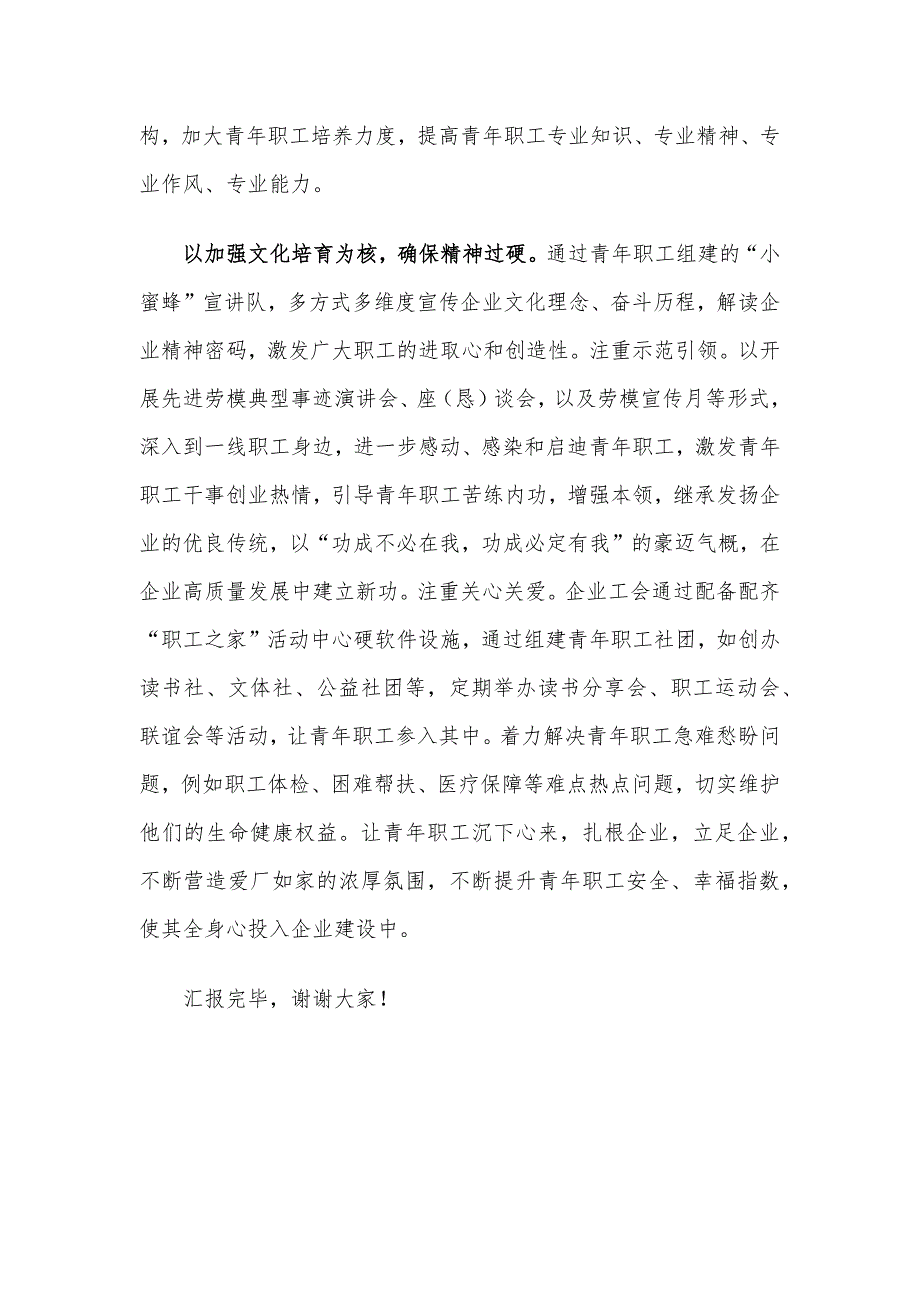 构，加大青年职工培养力度，提高青年职工专业知识、专业精神、专
业作风、专业能力。
以加强文化培育为核，确保精神过硬。通过青年职工组建的“小
蜜蜂”宣讲队，多方式多维度宣传企业文化理念、奋斗历程，解读企
业精神密码，激发广大职工的进取心和创造性。注重示范引领。以开
展先进劳模典型事迹演讲会、座（恳）谈会，以及劳模宣传月等形式，
深入到一线职工身边，进一步感动、感染和启迪青年职工，激发青年
职工干事创业热情，引导青年职工苦练内功，增强本领，继承发扬企
业的优良传统，以“功成不必在我，功成必定有我”的豪迈气概，在
企业高质量发展中建立新功。注重关心关爱。企业工会通过配备配齐
“职工之家”活动中心硬软件设施，通过组建青年职工社团，如创办
读书社、文体社、公益社团等，定期举办读书分享会、职工运动会、
联谊会等活动，让青年职工参入其中。着力解决青年职工急难愁盼问
题，例如职工体检、困难帮扶、医疗保障等难点热点问题，切实维护
他们的生命健康权益。让青年职工沉下心来，扎根企业，立足企业，
不断营造爱厂如家的浓厚氛围，不断提升青年职工安全、幸福指数，
使其全身心投入企业建设中。
汇报完毕，谢谢大家！